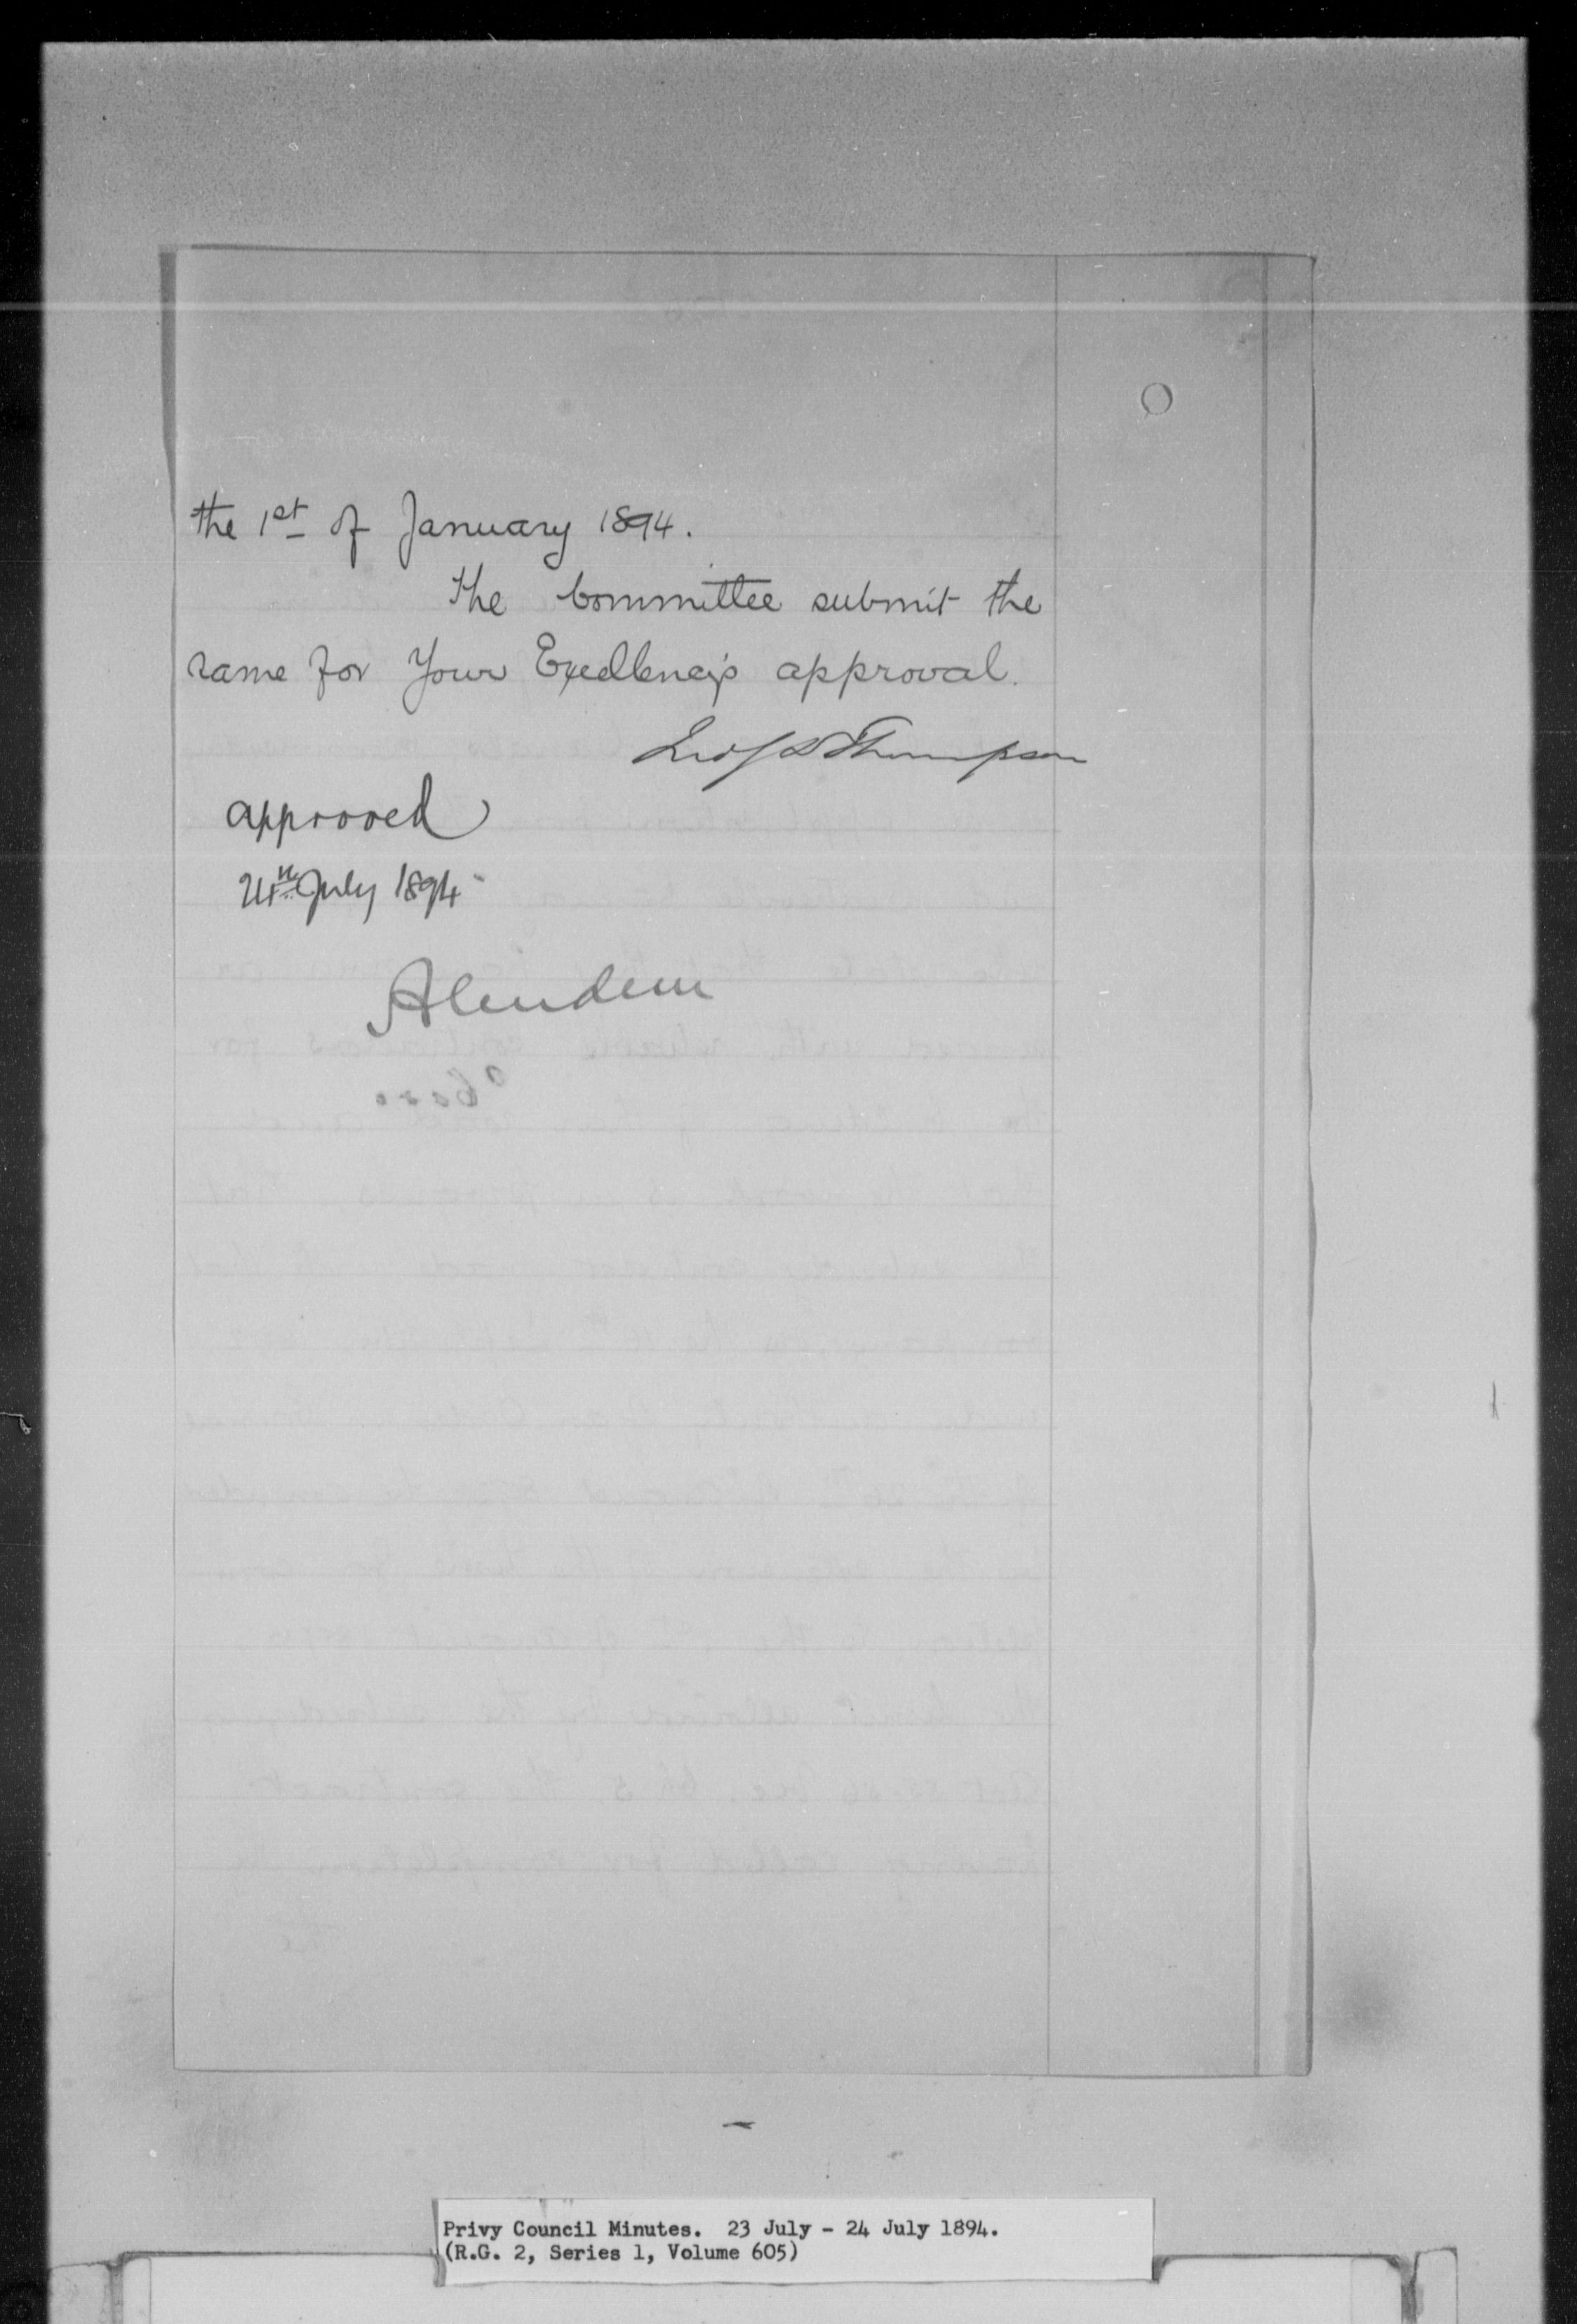 the 1st of January 1894.
The Committee submit the
same for Your Excellency's approval.
Jno S D Thompson
approved
24th July 1894
Aberdeen
Privy Council Minutes. 23 July - 24 July 1894.
(R.G. 2, Series 1, Volume 605)